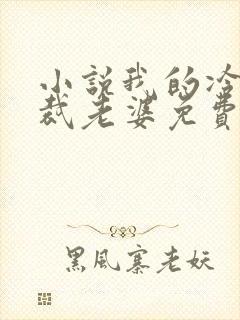 小説我的冷
裁老婆免費
黑風寨老妖